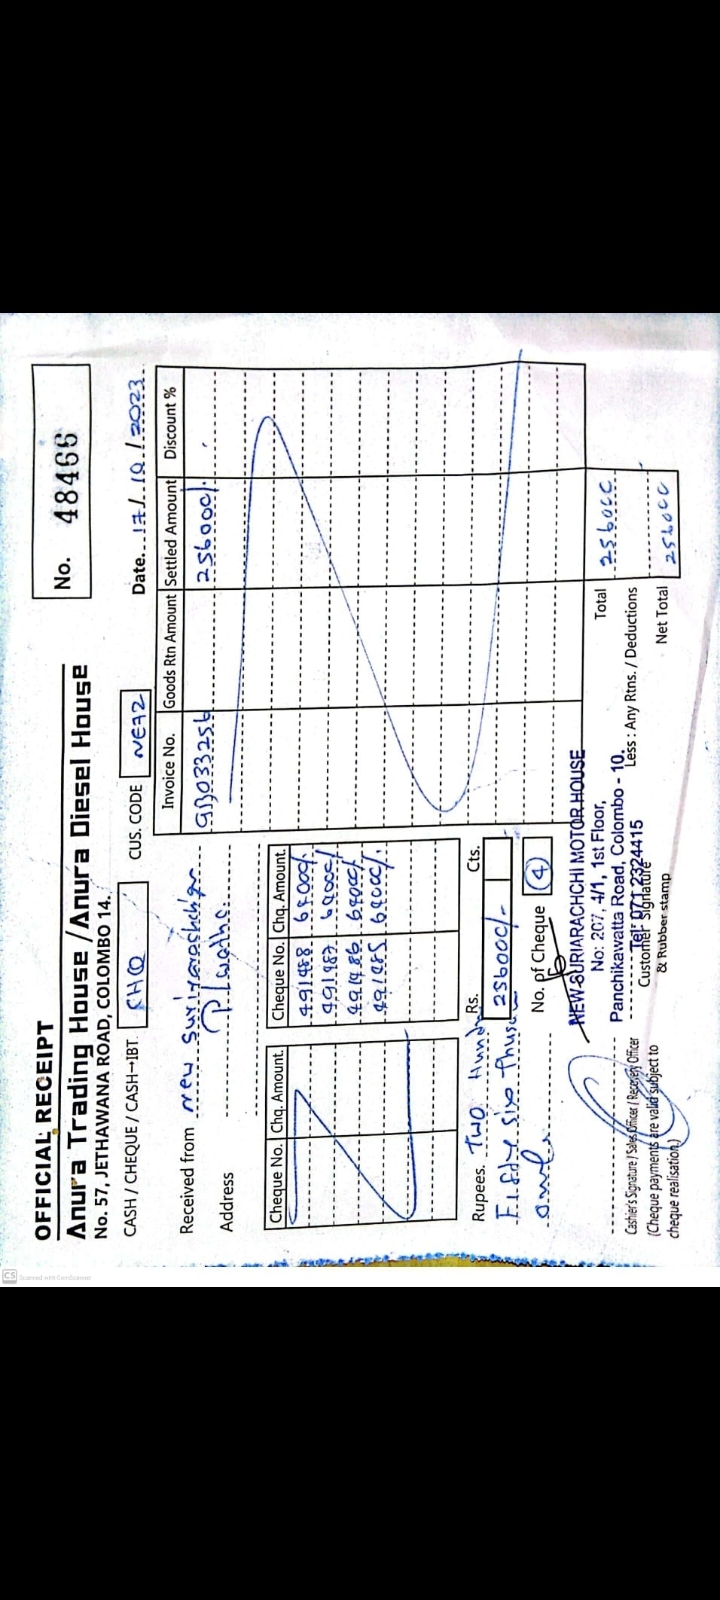 OFFICIAL RECEIPT
No. 48466
Anura Trading House / Anura Diesel House
No. 57, JETHAWANA ROAD, COLOMBO 14.
CASH / CHEQUE / CASH→IBT. CHQ CUS. CODE NE72 Date. 17/10/2023
Received from New
Address
Cheque No. Chq. Amount. Cheque No. Chq. Amount.
491488 64000/.
491487 64000/.
491486 64000/.
491485 64000/.
Invoice No. Goods Rtn Amount Settled Amount Discount %
256000/.
Rupees. Two
Rs. Cts.
256000/-
No. of Cheque 4
NEW SURIARACHCHI MOTOR HOUSE
No: 207, 4/1, 1st Floor,
Panchikawatta Road, Colombo - 10.
Tel: 071 2324415
Total 256000
Less : Any Rtns. / Deductions
Net Total 256000
Cashier's Signature / Sales Officer / Recovery Officer
(Cheque payments are valid subject to
cheque realisation)
Customer Signature
& Rubber stamp
CS Scanned with CamScanner